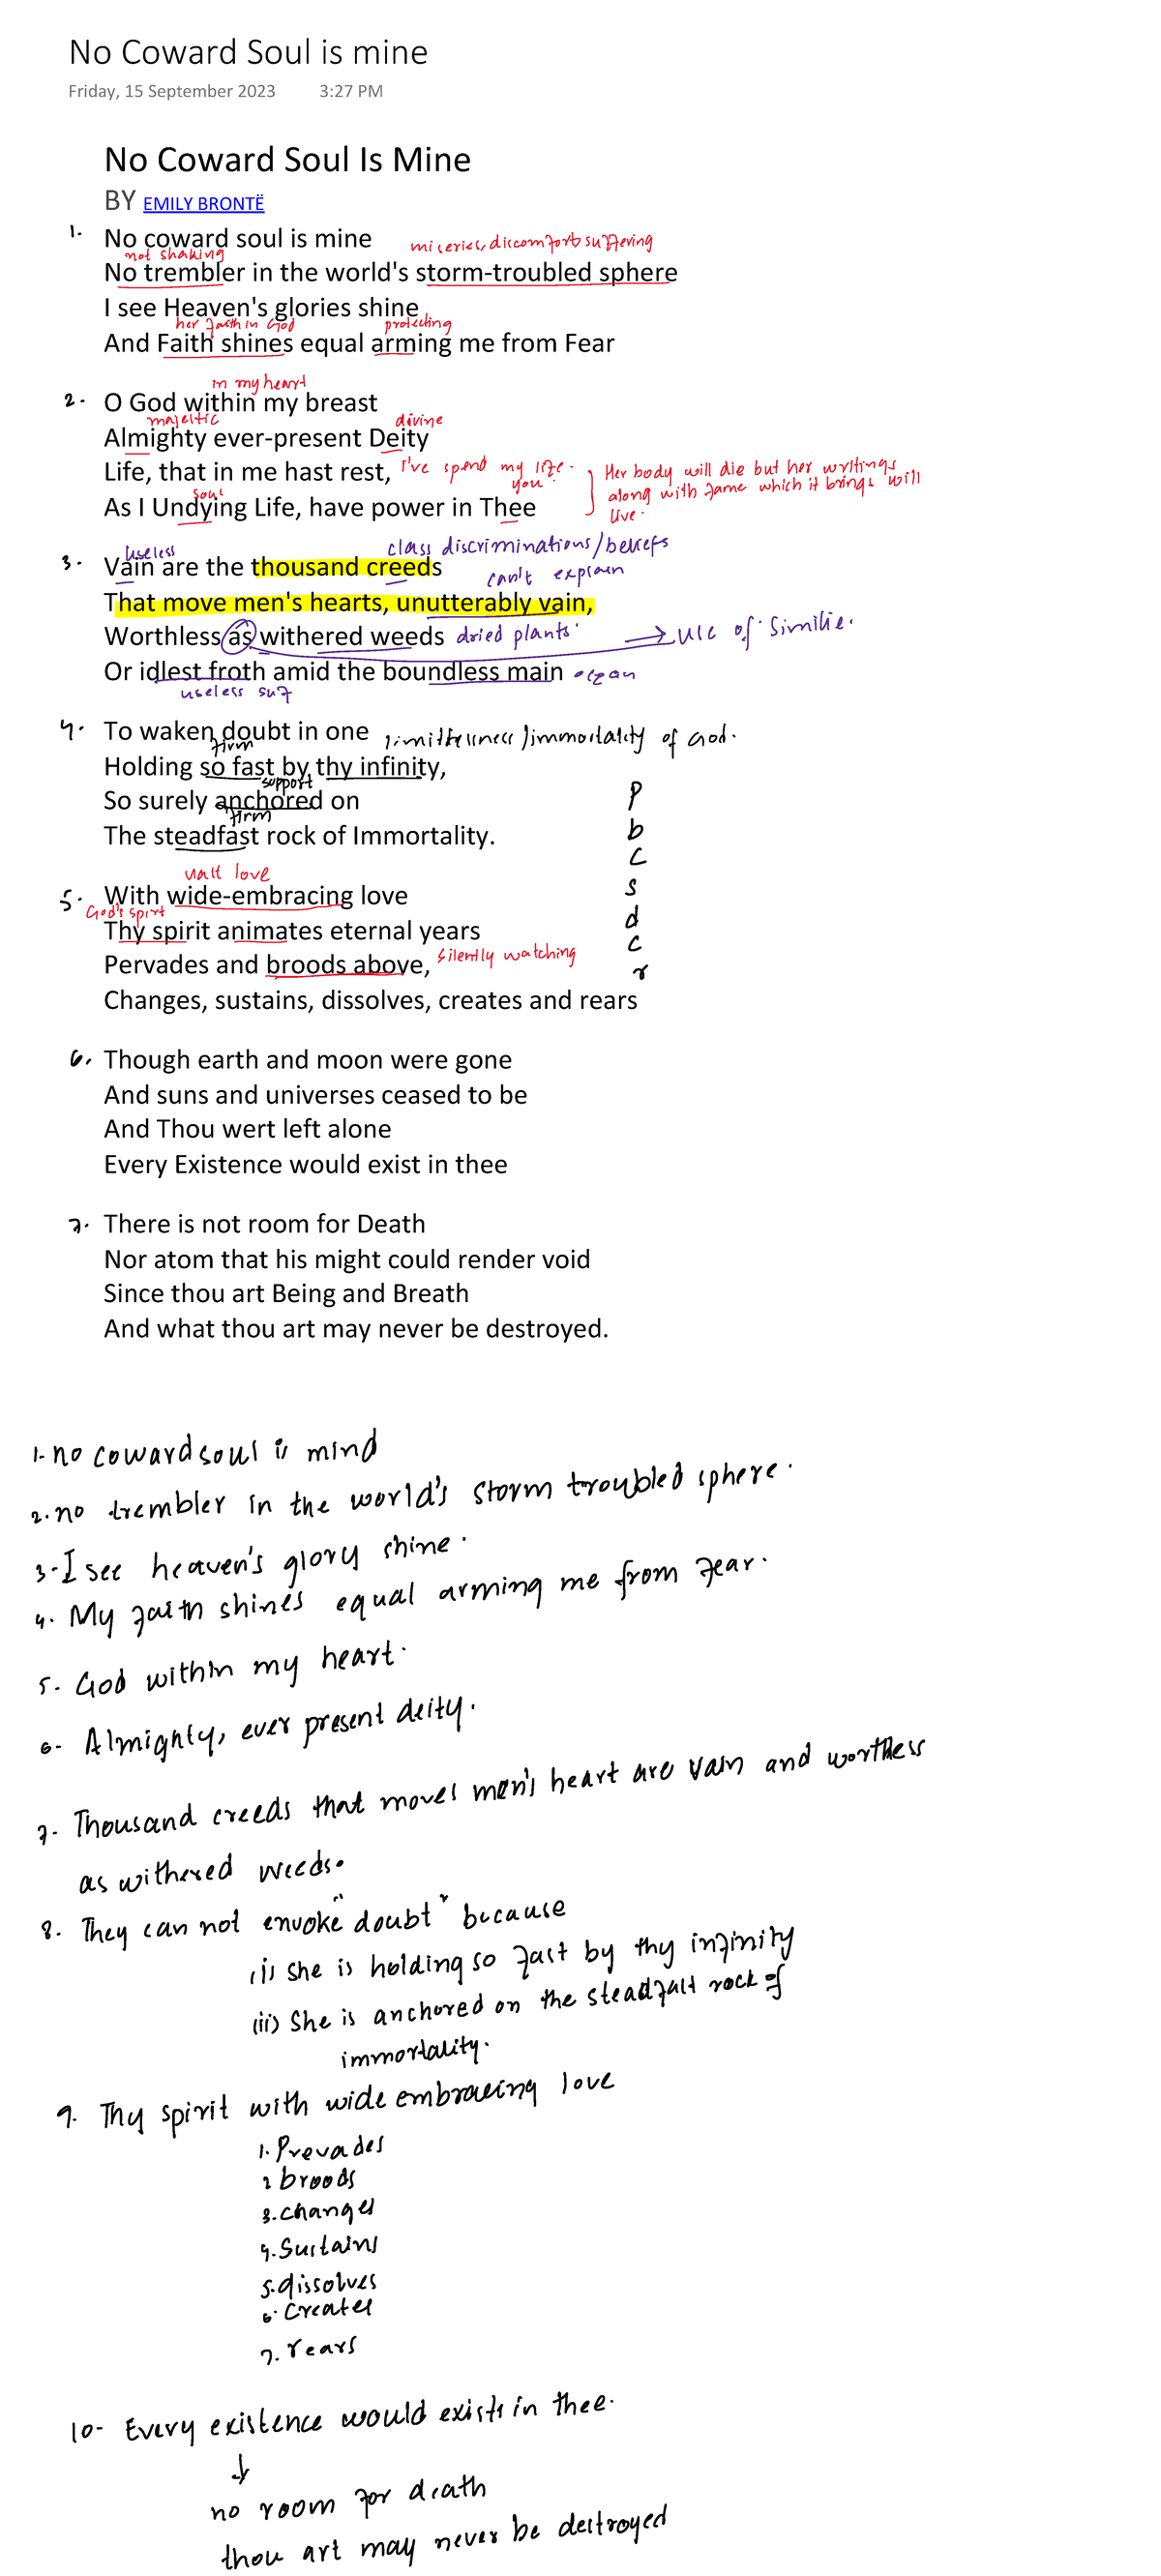 No Coward Soul is mine
Friday, 15 September 2023 3:27 PM
No Coward Soul Is Mine
BY EMILY BRONTË
1. No coward soul is mine
not shaking miseries, discomfort suffering
No trembler in the world's storm-troubled sphere
I see Heaven's glories shine
her faith in God protecting
And Faith shines equal arming me from Fear
in my heart
2. O God within my breast
majestic divine
Almighty ever-present Deity
Life, that in me hast rest, I've spend my life. you. Her body will die but her writings
soul along with fame which it brings will
As I Undying Life, have power in Thee live.
useless class discriminations/beliefs
3. Vain are the thousand creeds
can't explain
That move men's hearts, unutterably vain,
Worthless as withered weeds dried plants. → use of similie.
Or idlest froth amid the boundless main ocean
useless
4. To waken doubt in one limitlessness/immortality of God.
firm
Holding so fast by thy infinity,
support p
So surely anchored on
firm b
The steadfast rock of Immortality.
c
vast love
5. With wide-embracing love s
God's spirt
Thy spirit animates eternal years d
c
Pervades and broods above, silently watching
r
Changes, sustains, dissolves, creates and rears
6. Though earth and moon were gone
And suns and universes ceased to be
And Thou wert left alone
Every Existence would exist in thee
7. There is not room for Death
Nor atom that his might could render void
Since thou art Being and Breath
And what thou art may never be destroyed.
1. no coward soul is mind
2. no trembler in the world's storm troubled sphere.
3. I see heaven's glory shine.
4. My faith shines equal arming me from fear.
5. God within my heart.
6. Almighty, ever present deity.
7. Thousand creeds that moves men's heart are vain and worthless
as withered weeds.
8. They can not envoke "doubt" because
(i) she is holding so fast by thy infinity
(ii) She is anchored on the steadfast rock of
immortality.
9. Thy spirit with wide embracing love
1. Prevades
2 broods
3. changes
4. Sustains
5. dissolves
6. Creates
7. rears
10- Every existence would exists in thee.
↓
no room for death
thou art may never be destroyed